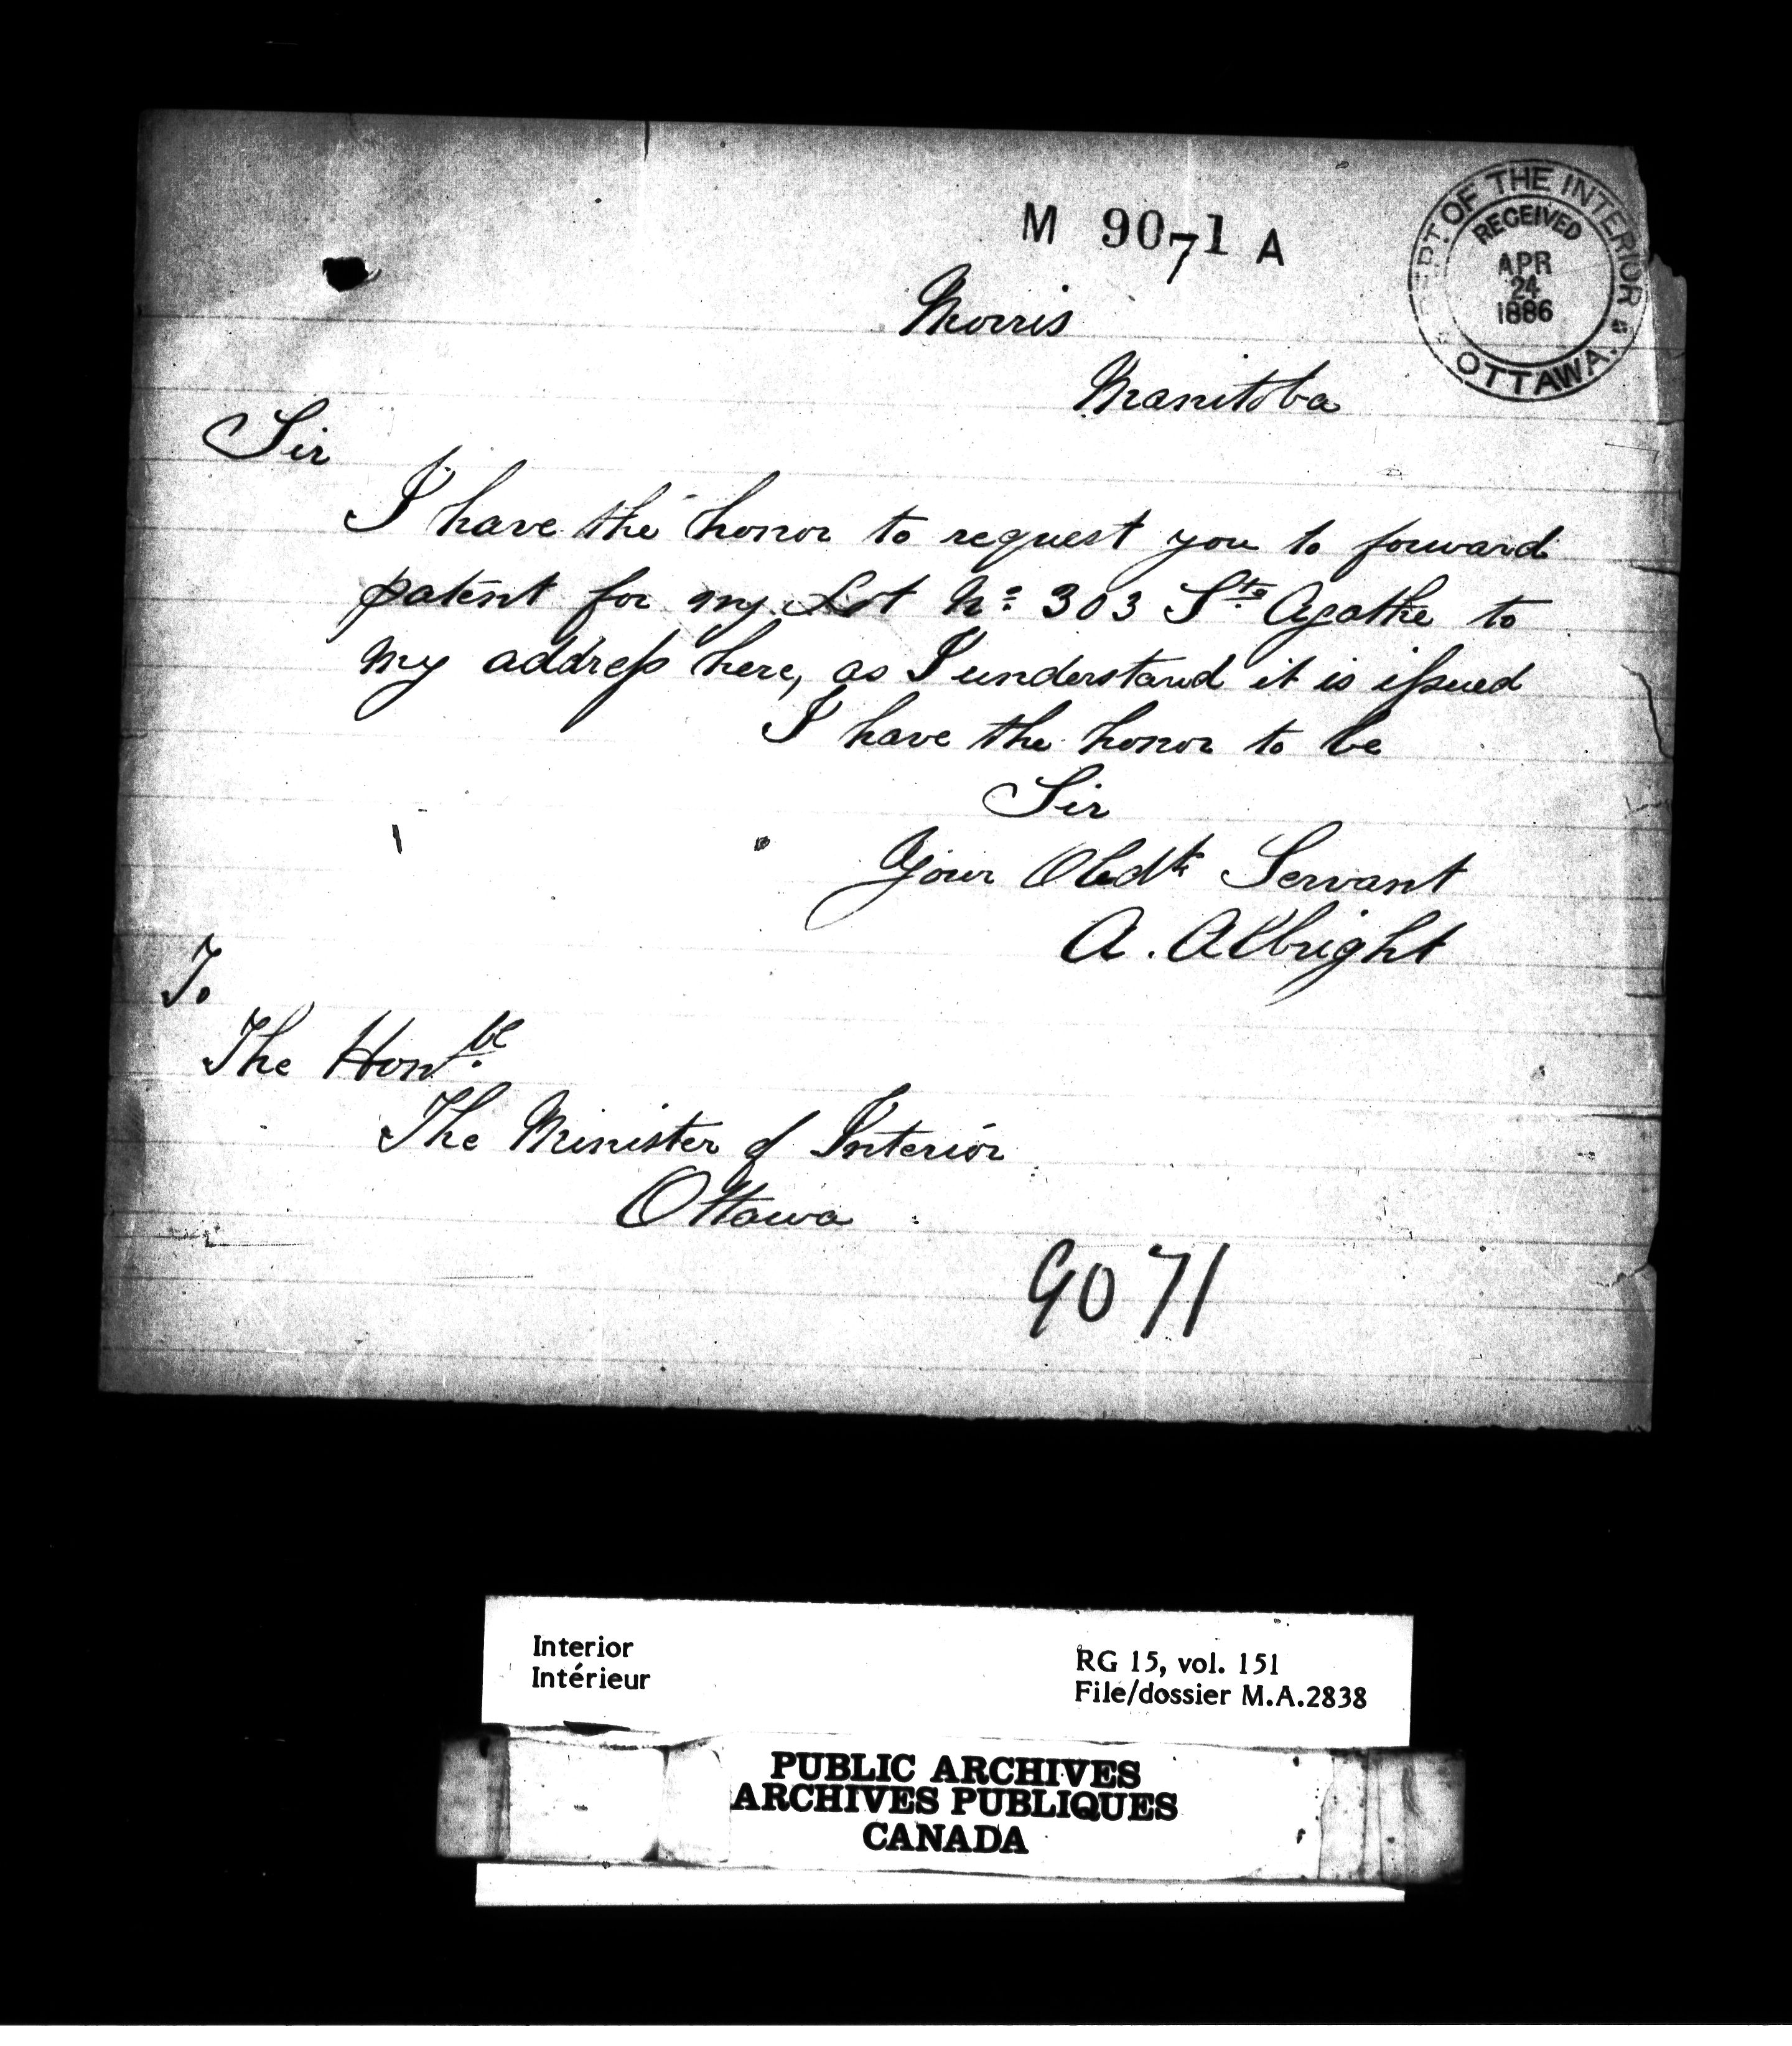 M 9071 A
DEPT. OF THE INTERIOR
RECEIVED
APR
24
1886
OTTAWA.
Morris
Manitoba
Sir
I have the honor to request you to forward
patent for my Lot No. 303 Ste. Agathe to
my address here, as I understand it is issued
I have the honor to be
Sir
Your Obdt Servant
A. Albright
To
The Honble
The Minister of Interior
Ottawa
9071
Interior
Intérieur
RG 15, vol. 151
File/dossier M.A.2838
PUBLIC ARCHIVES
ARCHIVES PUBLIQUES
CANADA